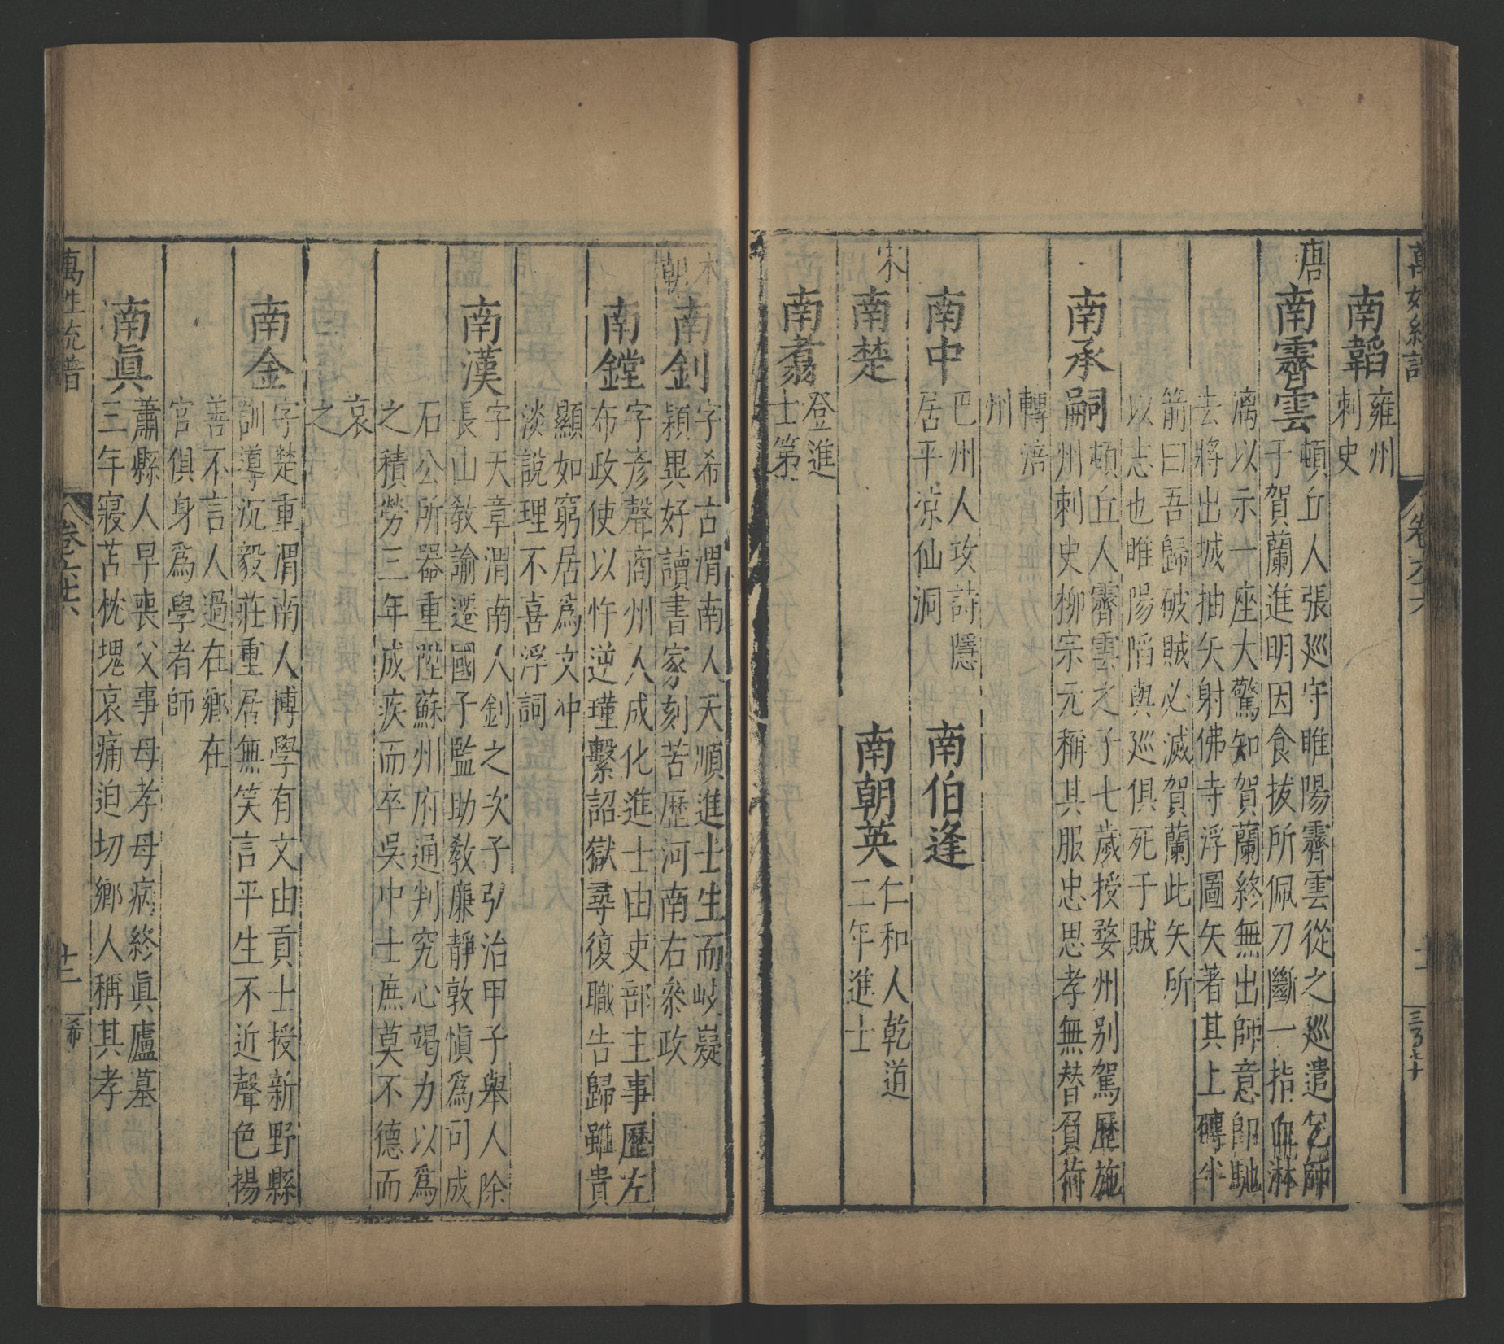 萬姓統譜
卷六十六
南韜
雍州
刺史
唐
南霽雲
頓丘人張巡守睢陽霽雲從之巡遣乞師
于賀蘭進明因食拔所佩刀斷一指血淋
漓以示一座大驚知賀蘭終無出師意卽馳
去將出城抽矢射佛寺浮圖矢著其上磚半
箭曰吾歸破賊必滅賀蘭此矢所
以志也睢陽陷與巡俱死于賊
南承嗣
頓丘人霽雲之子七歲授婺州别駕歷施
州刺史柳宗元稱其服忠思孝無替負荷
轉涪
州
南中
巴州人攻詩隱
居平涼仙洞
南伯逢
宋
南楚
南朝英
仁和人乾道
二年進士
南翥
登進
士第
本朝
南釗
字希古渭南人天順進士生而岐嶷
穎異好讀書家刻苦歷河南右叅政
南鏜
字彦聲商州人成化進士由吏部主事歷左
布政使以忤逆瑾繫詔獄尋復職告歸雖貴
顯如窮居爲文冲
淡說理不喜浮詞
南漢
字天章渭南人釗之次子弘治甲子舉人除
長山教諭遷國子監助教廉靜敦愼爲司成
石公所器重陞蘇州府通判究心竭力以爲
之積勞三年成疾而卒吳中士庶莫不德而
哀
之
南金
字楚重渭南人博學有文由貢士授新野縣
訓導沉毅莊重居無笑言平生不近聲色揚
善不言人過在鄉在
官俱身爲學者師
南眞
蕭縣人早喪父事母孝母病終眞廬墓
三年寢苫枕塊哀痛迫切鄉人稱其孝
萬姓統譜